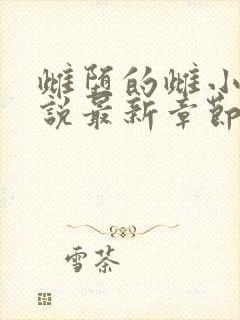 雌堕的雌小
说最新章節
雪茶